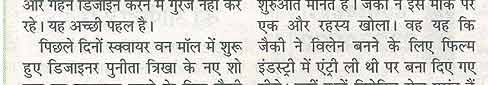 और गहन डिजाइन करने में गुरेज नहीं कर
रहे। यह अच्छी पहल है।
पिछले दिनों स्क्वायर वन मॉल में शुरू
हुए डिजाइनर पुनीता त्रिखा के नए शो
शुरुआत मानते हैं। जैकी ने इस मौके पर
एक और रहस्य खोला। वह यह कि
जैकी ने विलेन बनने के लिए फिल्म
इंडस्ट्री में एंट्री ली थी पर बना दिए गए